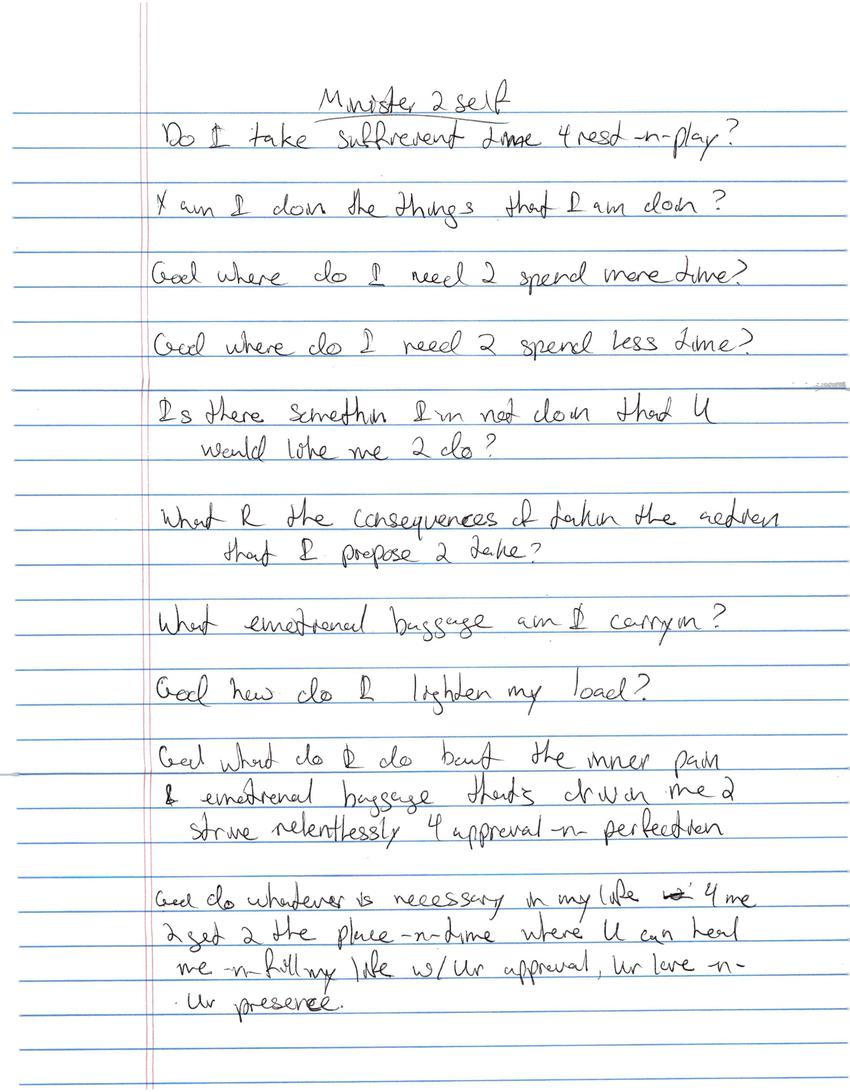 Minister 2 self
Do I take suffrecent time 4 rest -n- play?
Y am I doin the things that I am doin?
God where do I need 2 spend more time?
God where do I need 2 spend less time?
Is there somethin I'm not doin that U
would like me 2 do?
What R the consequences of takin the action
that I propose 2 take?
What emotional baggage am I carryin?
God how do I lighten my load?
God what do I do bout the inner pain
& emotional baggage that's drivin me 2
strive relentlessly 4 approval -n- perfection
God do whatever is necessary in my life 4 me
2 get 2 the place -n- time where U can heal
me -n- fill my life w/ Ur approval, Ur love -n-
Ur presence.